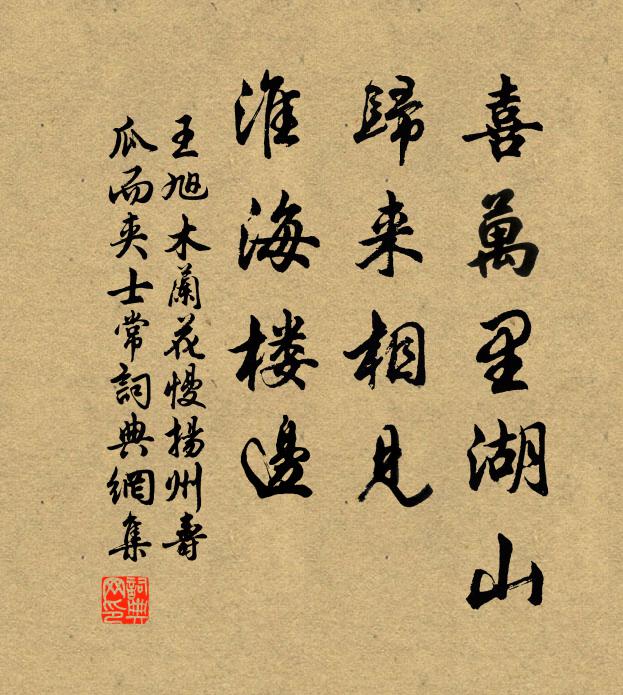 喜萬里湖山
歸来相見
淮海楼邊
王旭木蘭花慢揚州壽
瓜而夾士常詞典網集
詞典
网印